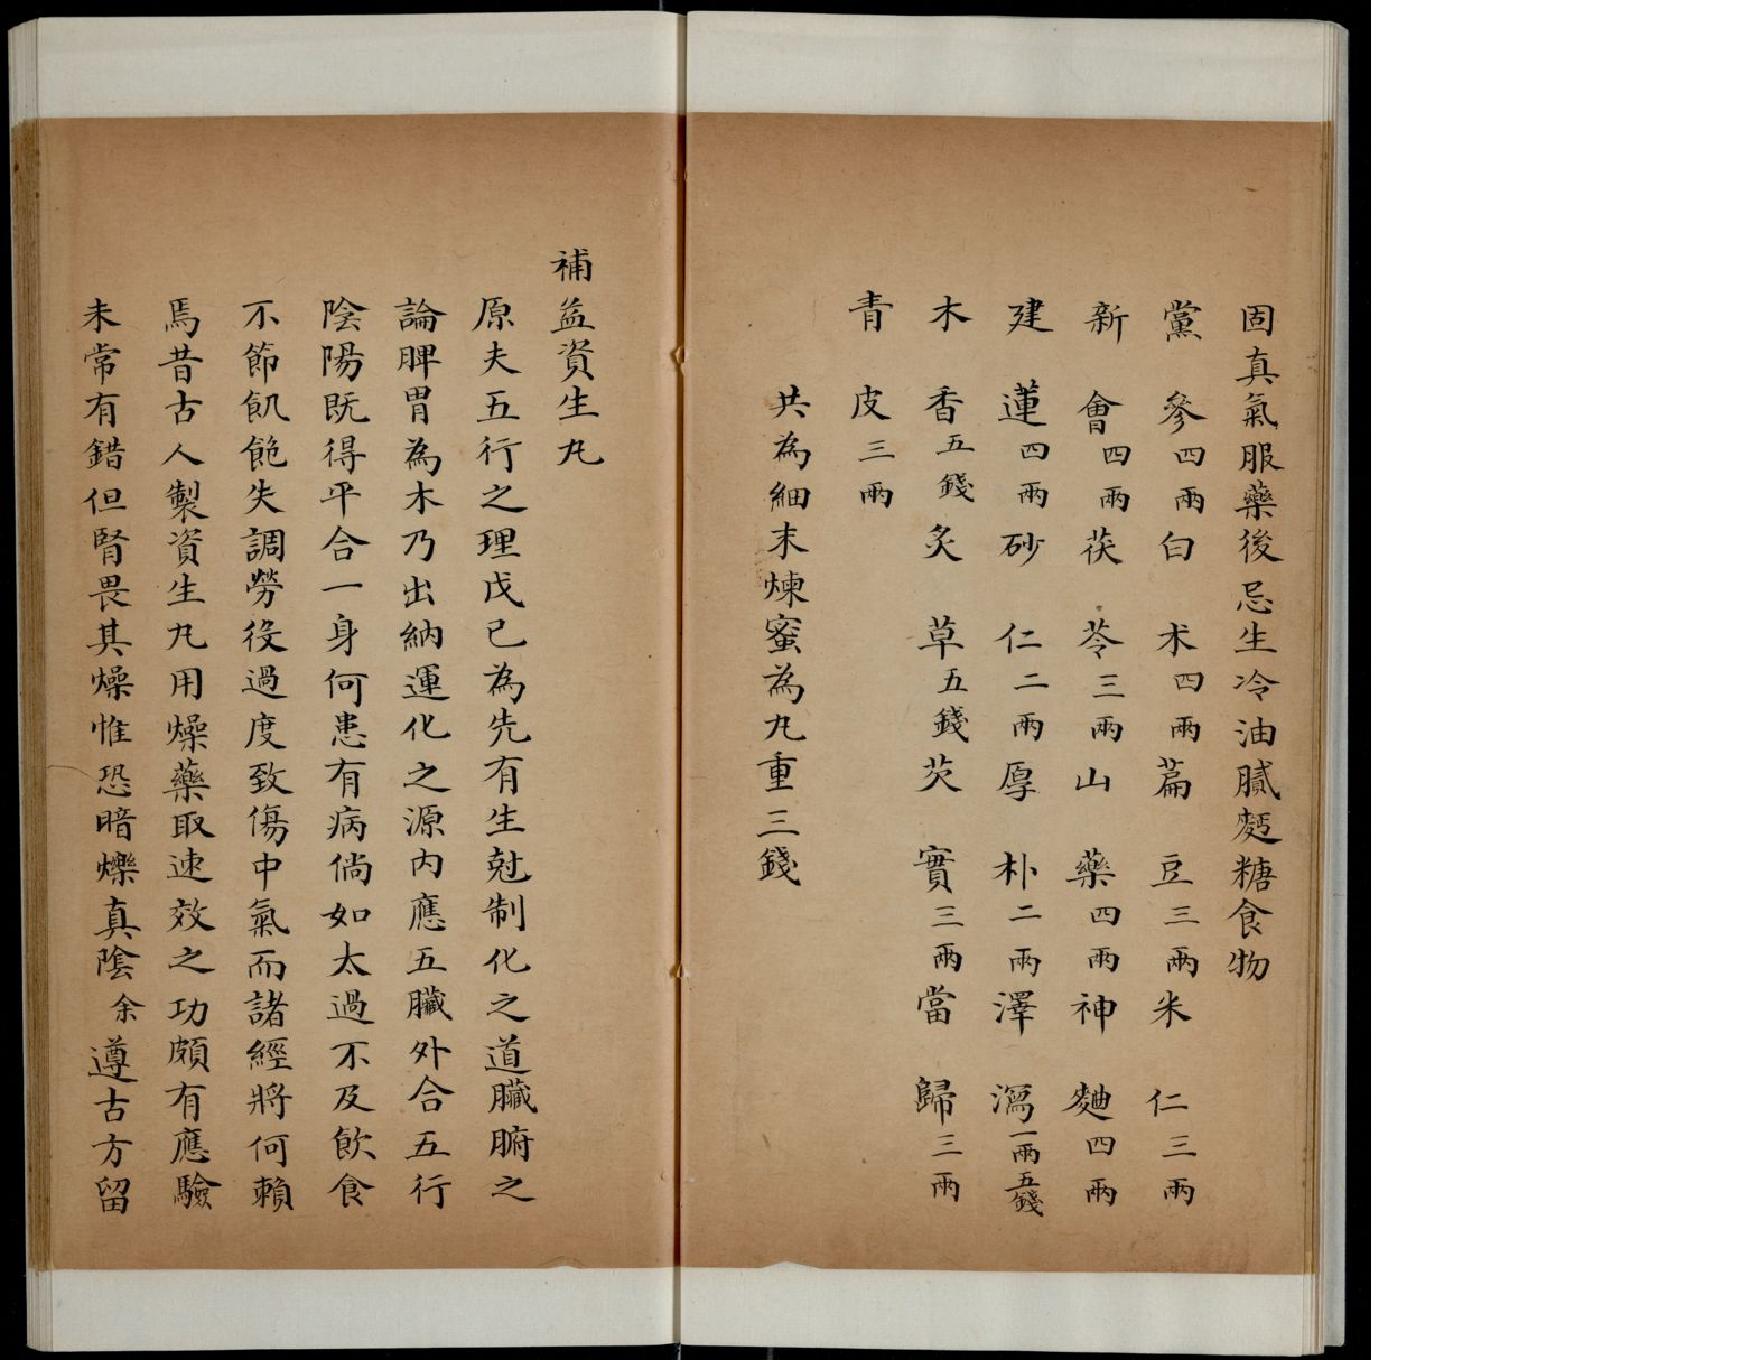 固真氣服藥後忌生冷油膩麪糖食物
黨參四兩白术四兩萹豆三兩米仁三兩
新會四兩茯苓三兩山藥四兩神麯四兩
建蓮四兩砂仁二兩厚朴二兩澤瀉一兩五錢
木香五錢炙草五錢芡實三兩當歸三兩
青皮三兩
共為細末煉蜜為丸重三錢
補益資生丸
原夫五行之理戊已為先有生尅制化之道臟腑之
論脾胃為木乃出納運化之源内應五臟外合五行
陰陽既得平合一身何患有病倘如太過不及飲食
不節飢飽失調勞役過度致傷中氣而諸經將何賴
焉昔古人製資生丸用燥藥取速效之功頗有應驗
未常有錯但腎畏其燥惟恐暗爍真陰余遵古方留